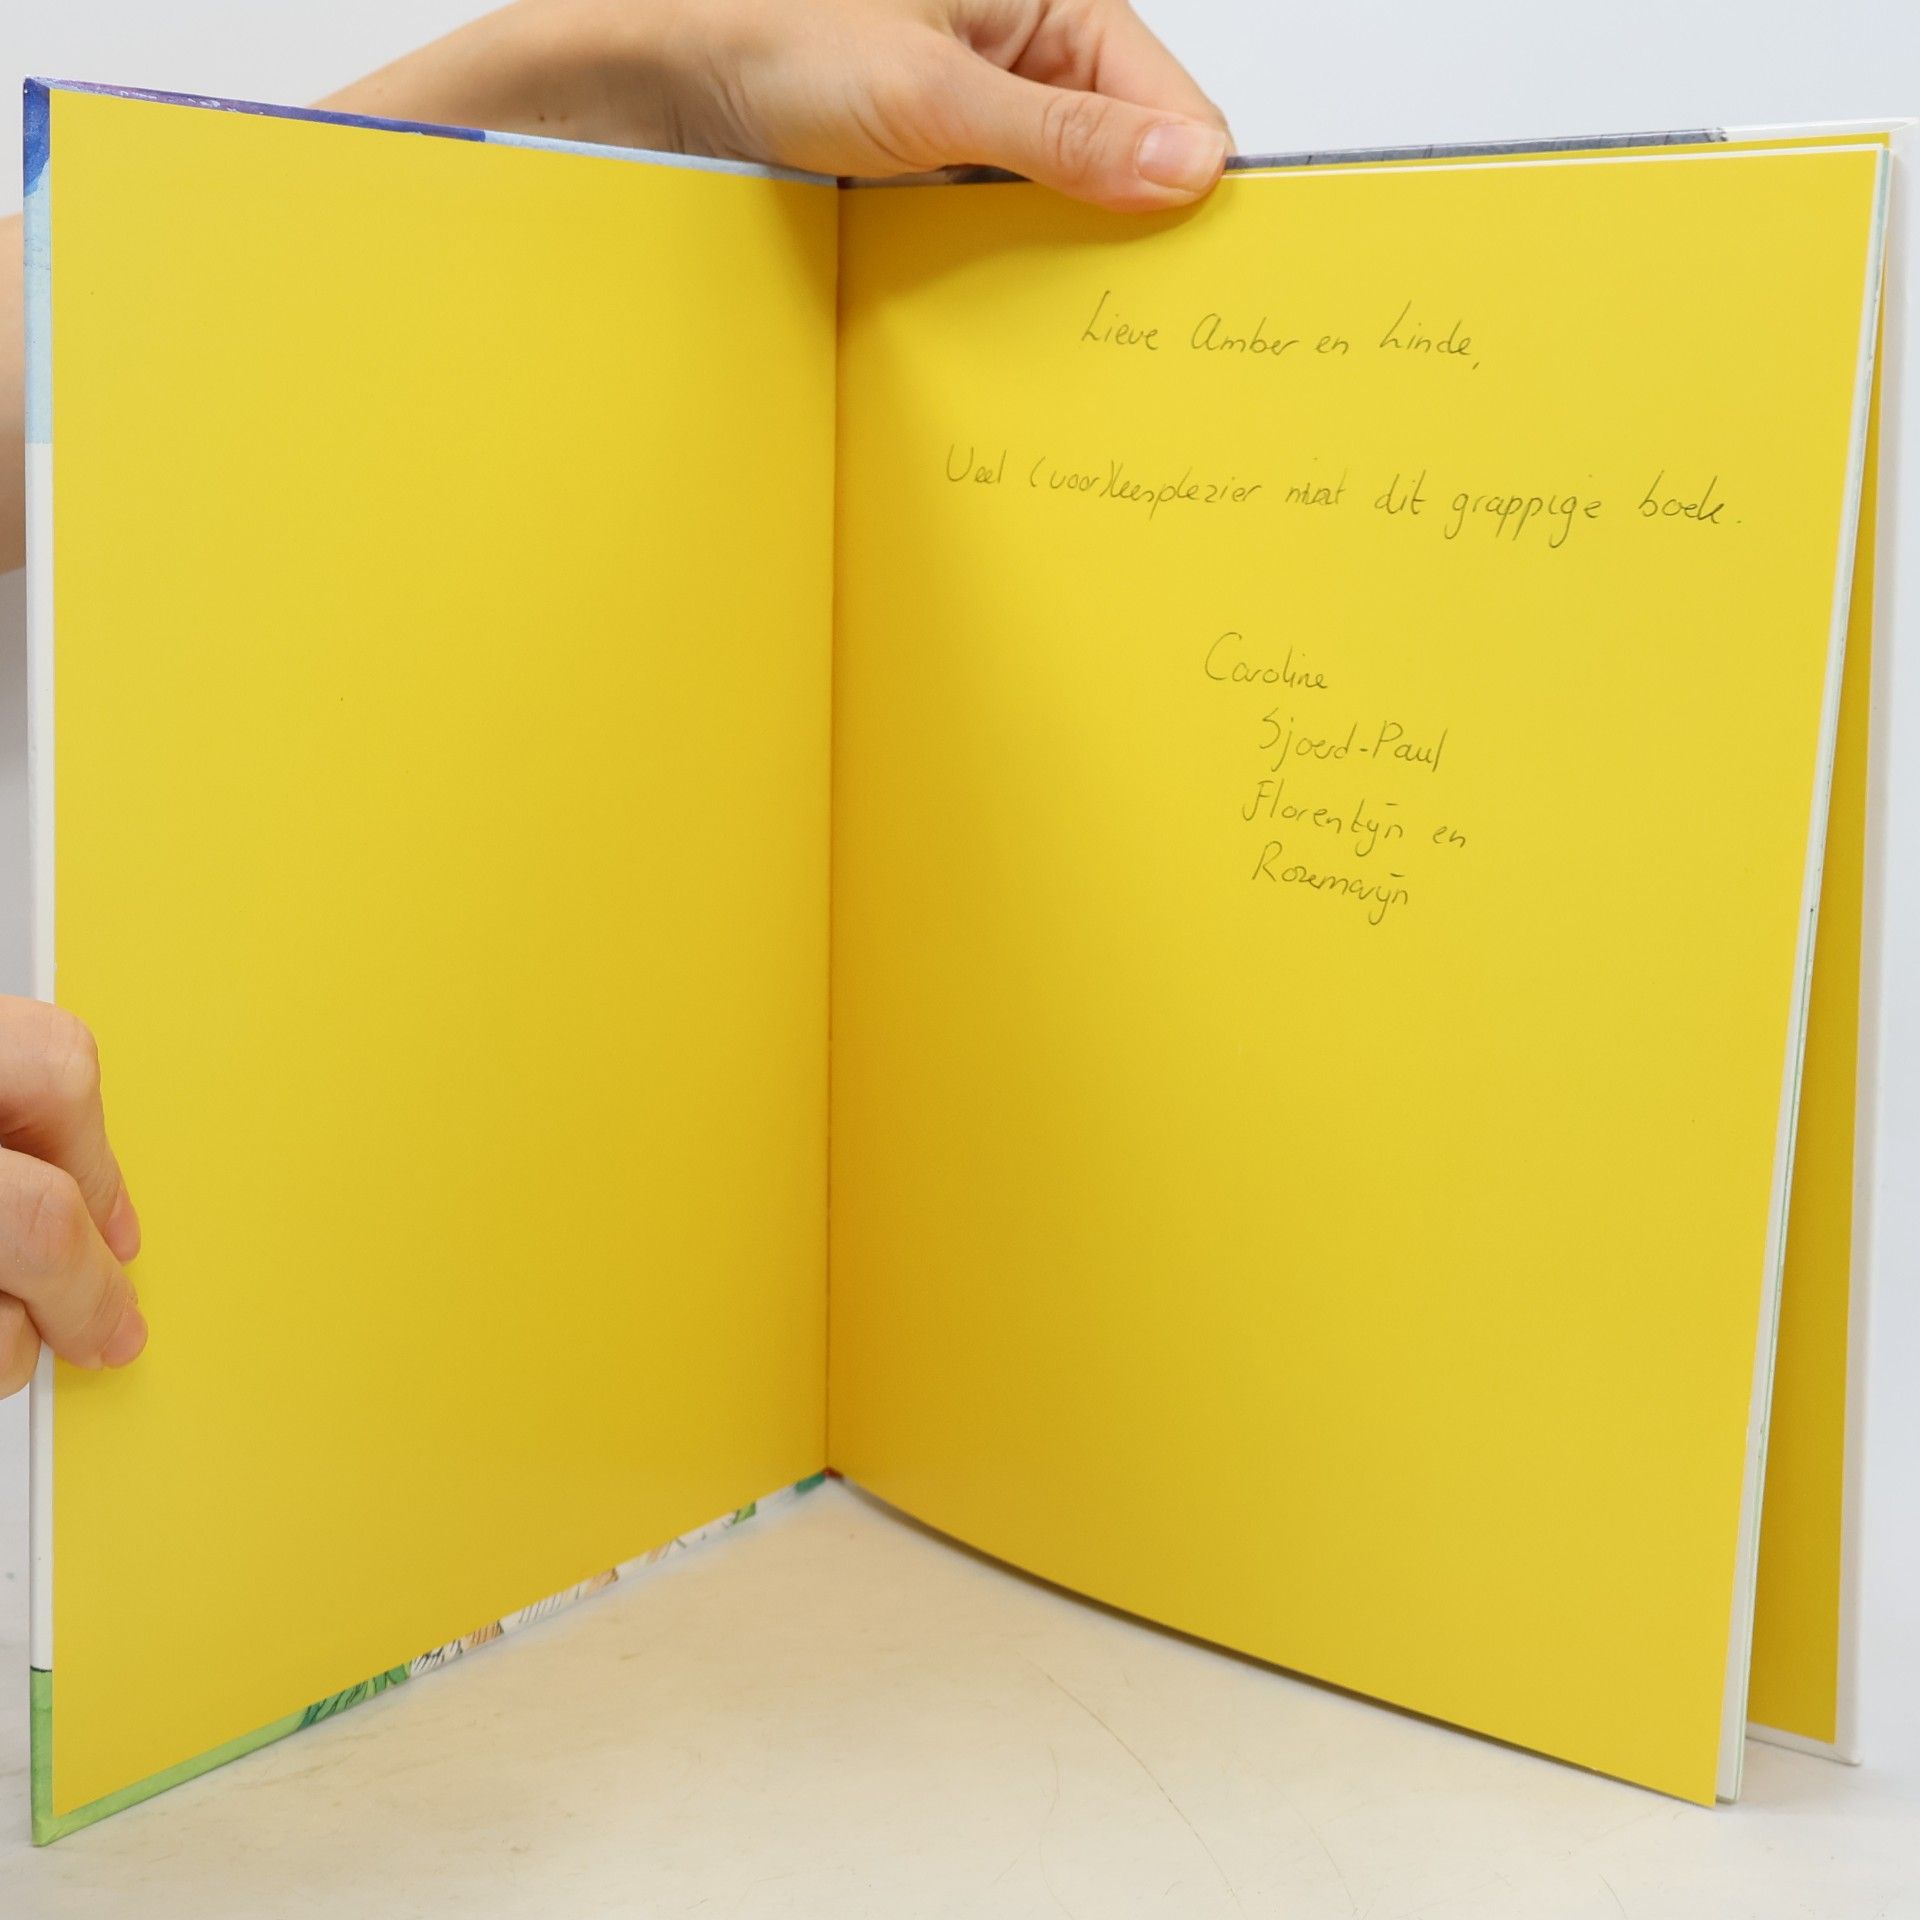 Lieve Amber en Linde,
Veel (voor)leesplezier met dit grappige boek.
Caroline
Sjoerd-Paul
Florentijn en
Rozemarijn